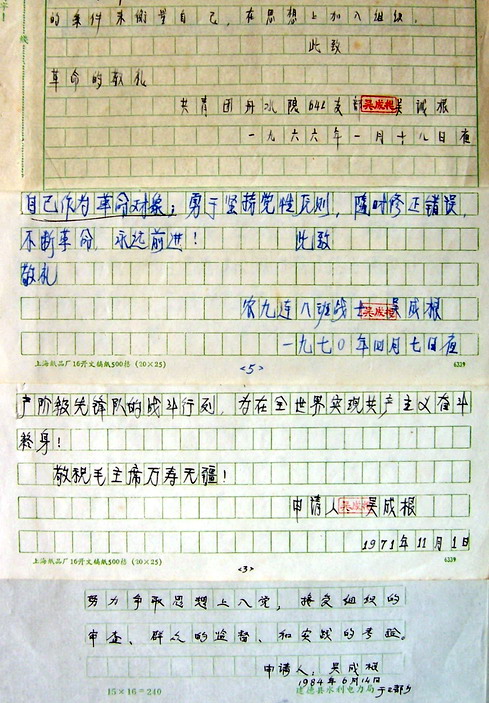 的条件来衡量自己，在思想上加入组织。
此致
革命的敬礼
共青团丹水险641支部 吴成根 吴诚根
一九六六年一月十八日夜
自己作为革命对象；勇于坚持党性原则，随时修正错误，
不断革命，永远前进！ 此致
敬礼
农九连八班战士 吴成根 吴成根
一九七〇年四月七日夜
上海纸品厂16开文稿纸500格 (20×25)
<5>
6339
产阶级先锋队的战斗行列，为在全世界实现共产主义奋斗
终身！
敬祝毛主席万寿无疆！
申请人 吴成根 吴成根
1971年11月1日
上海纸品厂16开文稿纸500格 (20×25)
<3>
6339
努力争取思想上入党，接受组织的
审查、群众的监督、和实践的考验。
申请人：吴成根
1984年6月14日
15×16=240
建德县水利电力局